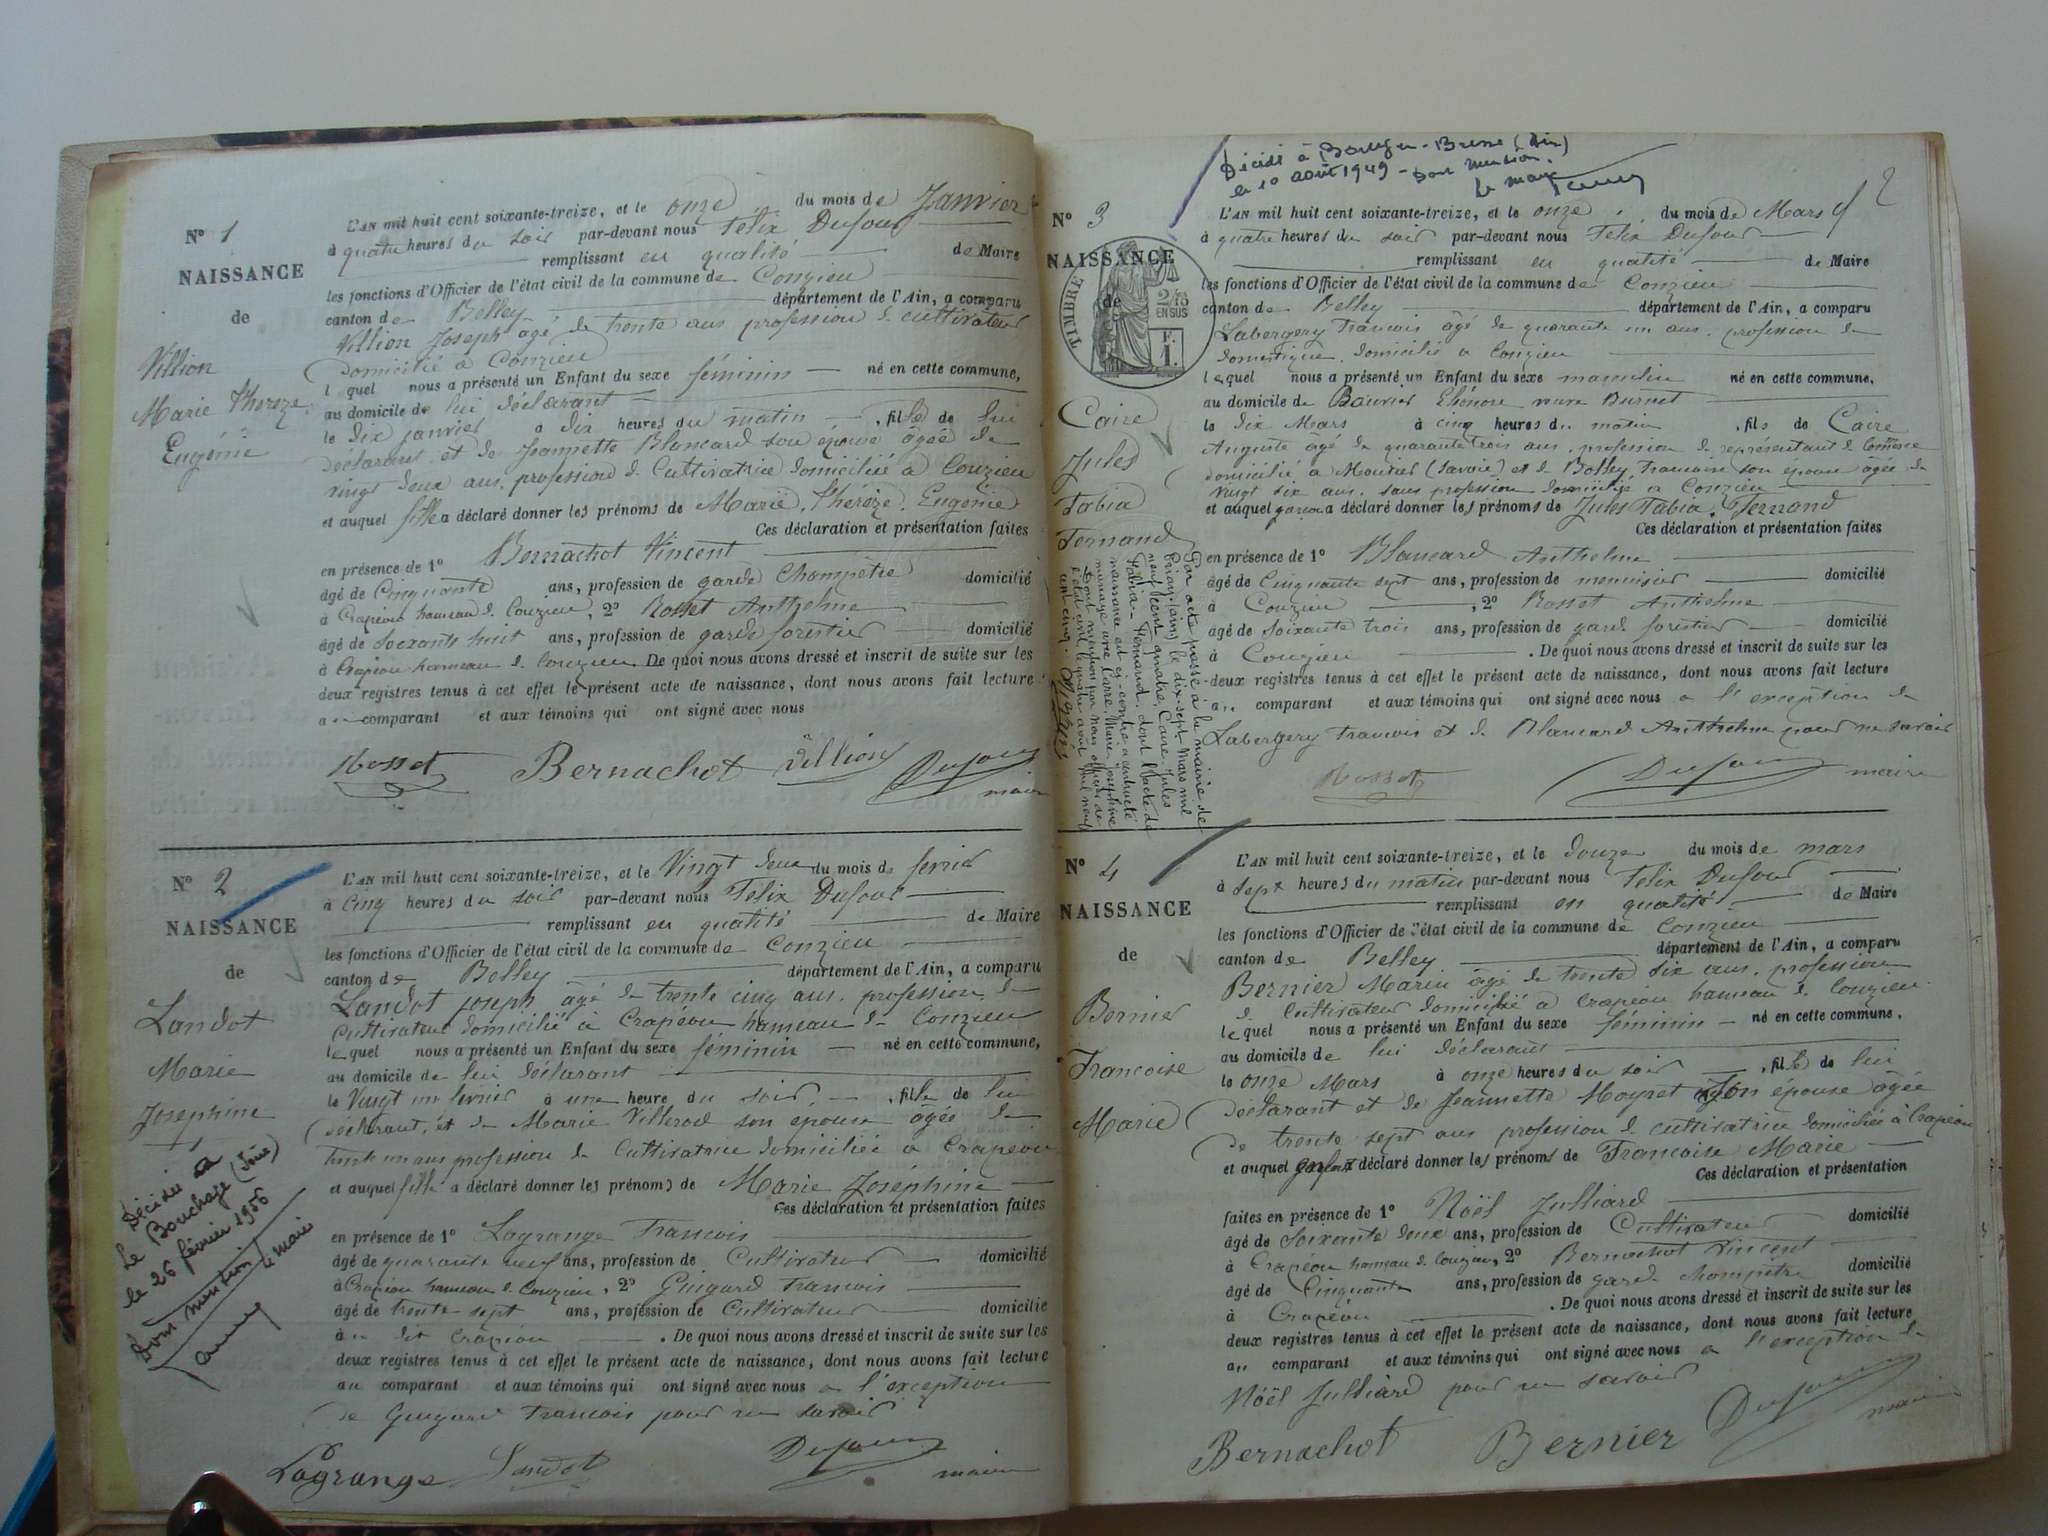 N° 1
NAISSANCE
de
Villion
Marie Thérèze
Eugénie
L'AN mil huit cent soixante-treize, et le onze du mois de Janvier
à quatre heures du soir par-devant nous Félix Dufour
remplissant en qualité de Maire
les fonctions d'Officier de l'état civil de la commune de Conzieu
canton de Belley département de l'Ain, a comparu
Villion Joseph âgé de trente ans profession de cultivateur
domicilié à Conzieu
lequel nous a présenté un Enfant du sexe féminin né en cette commune,
au domicile de lui déclarant
le dix janvier à dix heures du matin, fille de lui
déclarant et de Jeannette Blancard son épouse âgée de
vingt deux ans, profession de Cultivatrice domiciliée à Conzieu
et auquel fille a déclaré donner les prénoms de Marie, Thérèze, Eugénie
Ces déclaration et présentation faites
en présence de 1° Bernachot Vincent
âgé de Cinquante ans, profession de garde Champêtre domicilié
à Crapéou hameau de Conzieu, 2° Rosset Anthelme
âgé de Soixante huit ans, profession de garde forestier domicilié
à Crapéou hameau de Conzieu. De quoi nous avons dressé et inscrit de suite sur les
deux registres tenus à cet effet le présent acte de naissance, dont nous avons fait lecture
au comparant et aux témoins qui ont signé avec nous
Rosset Bernachot Villion Dufour
maire
N° 2
NAISSANCE
de
Landot
Marie
Josephine
Décédée à
Le Bouchage (Isère)
le 26 février 1956
Dont mention
Le maire
L'AN mil huit cent soixante-treize, et le Vingt deux du mois de fevrier
à cinq heures du soir par-devant nous Félix Dufour
remplissant en qualité de Maire
les fonctions d'Officier de l'état civil de la commune de Conzieu
canton de Belley département de l'Ain, a comparu
Landot Joseph âgé de trente cinq ans, profession de
cultivateur domicilié à Crapéou hameau de Conzieu
lequel nous a présenté un Enfant du sexe féminin né en cette commune,
au domicile de lui déclarant
le Vingt un fevrier à une heure du soir, fille de lui
déclarant, et de Marie Villerod son épouse âgée de
trente un ans profession de Cultivatrice domiciliée à Crapéou
et auquel fille a déclaré donner les prénoms de Marie Joséphine
Ces déclaration et présentation faites
en présence de 1° Lagrange Francois
âgé de quarante neuf ans, profession de Cultivateur domicilié
à Crapéou hameau de Conzieu, 2° Guigard Francois
âgé de trente sept ans, profession de Cultivateur domicilié
à dit Crapéou. De quoi nous avons dressé et inscrit de suite sur les
deux registres tenus à cet effet le présent acte de naissance, dont nous avons fait lecture
au comparant et aux témoins qui ont signé avec nous à l'exception
de Guigard Francois pour ne savoir
Lagrange Landot Dufour
maire
Décédé à Bourg-en-Bresse (Ain)
le 10 août 1949 - Dont mention.
Le maire
2
N° 3
NAISSANCE
de
TIMBRE
2/10
EN SUS
F.
1.
Caire
Jules
Fabia
Fernand
Par acte passé à la mairie de
le dix-sept Mars mil
neuf cent quatre, Caire Jules
Fabia - Fernand, dont l'acte de
naissance est ci-contre a contracté
mariage avec Carre Marie Josephine
Dont mention par nous officier de
l'état civil le quatre août mil neuf
cent cinq.
L'AN mil huit cent soixante-treize, et le onze du mois de Mars
à quatre heures du soir par-devant nous Félix Dufour
remplissant en qualité de Maire
les fonctions d'Officier de l'état civil de la commune de Conzieu
canton de Belley département de l'Ain, a comparu
Labergery Francois âgé de quarante un ans, profession de
domestique, domicilié à Conzieu
lequel nous a présenté un Enfant du sexe masculin né en cette commune,
au domicile de Bouvier Eléonore veuve Burnet
le dix Mars à cinq heures du matin, fils de Caire
Auguste âgé de quarante trois ans, profession de représentant de Commerce
domicilié à Moutiers (Savoie) et de Bolley Francoise son épouse âgée de
vingt six ans, sans profession domiciliée à Conzieu
et auquel garçon a déclaré donner les prénoms de Jules Fabia, Fernand
Ces déclaration et présentation faites
en présence de 1° Blancard Anthelme
âgé de Cinquante sept ans, profession de menuisier domicilié
à Conzieu, 2° Rosset Anthelme
âgé de Soixante trois ans, profession de garde forestier domicilié
à Conzieu. De quoi nous avons dressé et inscrit de suite sur les
deux registres tenus à cet effet le présent acte de naissance, dont nous avons fait lecture
au comparant et aux témoins qui ont signé avec nous à l'exception de
Labergery Francois et de Blancard Anthelme pour ne savoir
Rosset Dufour maire
N° 4
NAISSANCE
de
Bernier
Francoise
Marie
L'AN mil huit cent soixante-treize, et le douze du mois de mars
à sept heures du matin par-devant nous Félix Dufour
remplissant en qualité de Maire
les fonctions d'Officier de l'état civil de la commune de Conzieu
canton de Belley département de l'Ain, a comparu
Bernier Marin âgé de trente six ans, profession
de Cultivateur domicilié à Crapéou hameau de Conzieu
lequel nous a présenté un Enfant du sexe féminin né en cette commune,
au domicile de lui déclarant
le onze Mars à onze heures du soir, fille de lui
déclarant et de Jeannette Moyret son épouse âgée
de trente sept ans profession de cultivatrice domiciliée à Crapéou
et auquel enfant déclaré donner les prénoms de Francoise Marie
Ces déclaration et présentation
faites en présence de 1° Noël Julliard
âgé de Soixante deux ans, profession de Cultivateur domicilié
à Crapéou hameau de Conzieu, 2° Bernachot Vincent
âgé de Cinquante ans, profession de garde champêtre domicilié
à Crapéou. De quoi nous avons dressé et inscrit de suite sur les
deux registres tenus à cet effet le présent acte de naissance, dont nous avons fait lecture
au comparant et aux témoins qui ont signé avec nous à l'exception de
Noël Julliard pour ne savoir
Bernachot Bernier Dufour
maire